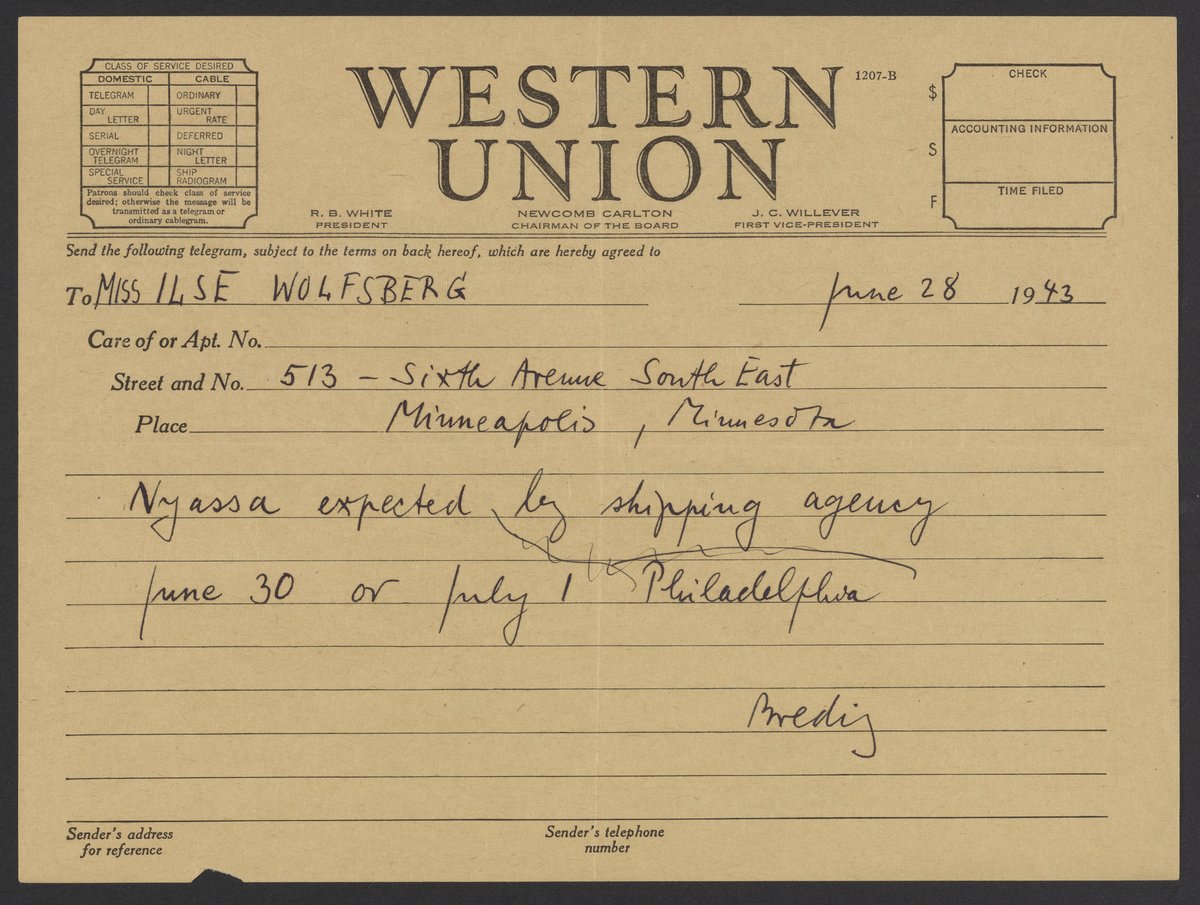 CLASS OF SERVICE DESIRED
DOMESTIC CABLE
TELEGRAM ORDINARY
DAY LETTER URGENT RATE
SERIAL DEFERRED
OVERNIGHT TELEGRAM NIGHT LETTER
SPECIAL SERVICE SHIP RADIOGRAM
Patrons should check class of service
desired; otherwise the message will be
transmitted as a telegram or
ordinary cablegram.
WESTERN
UNION
1207-B
R. B. WHITE
PRESIDENT
NEWCOMB CARLTON
CHAIRMAN OF THE BOARD
J. C. WILLEVER
FIRST VICE-PRESIDENT
$ CHECK
S ACCOUNTING INFORMATION
F TIME FILED
Send the following telegram, subject to the terms on back hereof, which are hereby agreed to
To MISS ILSE WOLFSBERG June 28 1943
Care of or Apt. No.
Street and No. 513 - Sixth Avenue South East
Place Minneapolis, Minnesota
Nyassa expected by shipping agency
June 30 or July 1 Philadelphia
Bredig
Sender's address
for reference
Sender's telephone
number